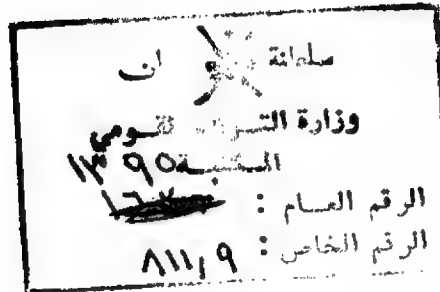 سلطانة عمان
وزارة التراث القومي
المكتبة ١٣٩٥
الرقم العام :
الرقم الخاص : ٨١١,٩